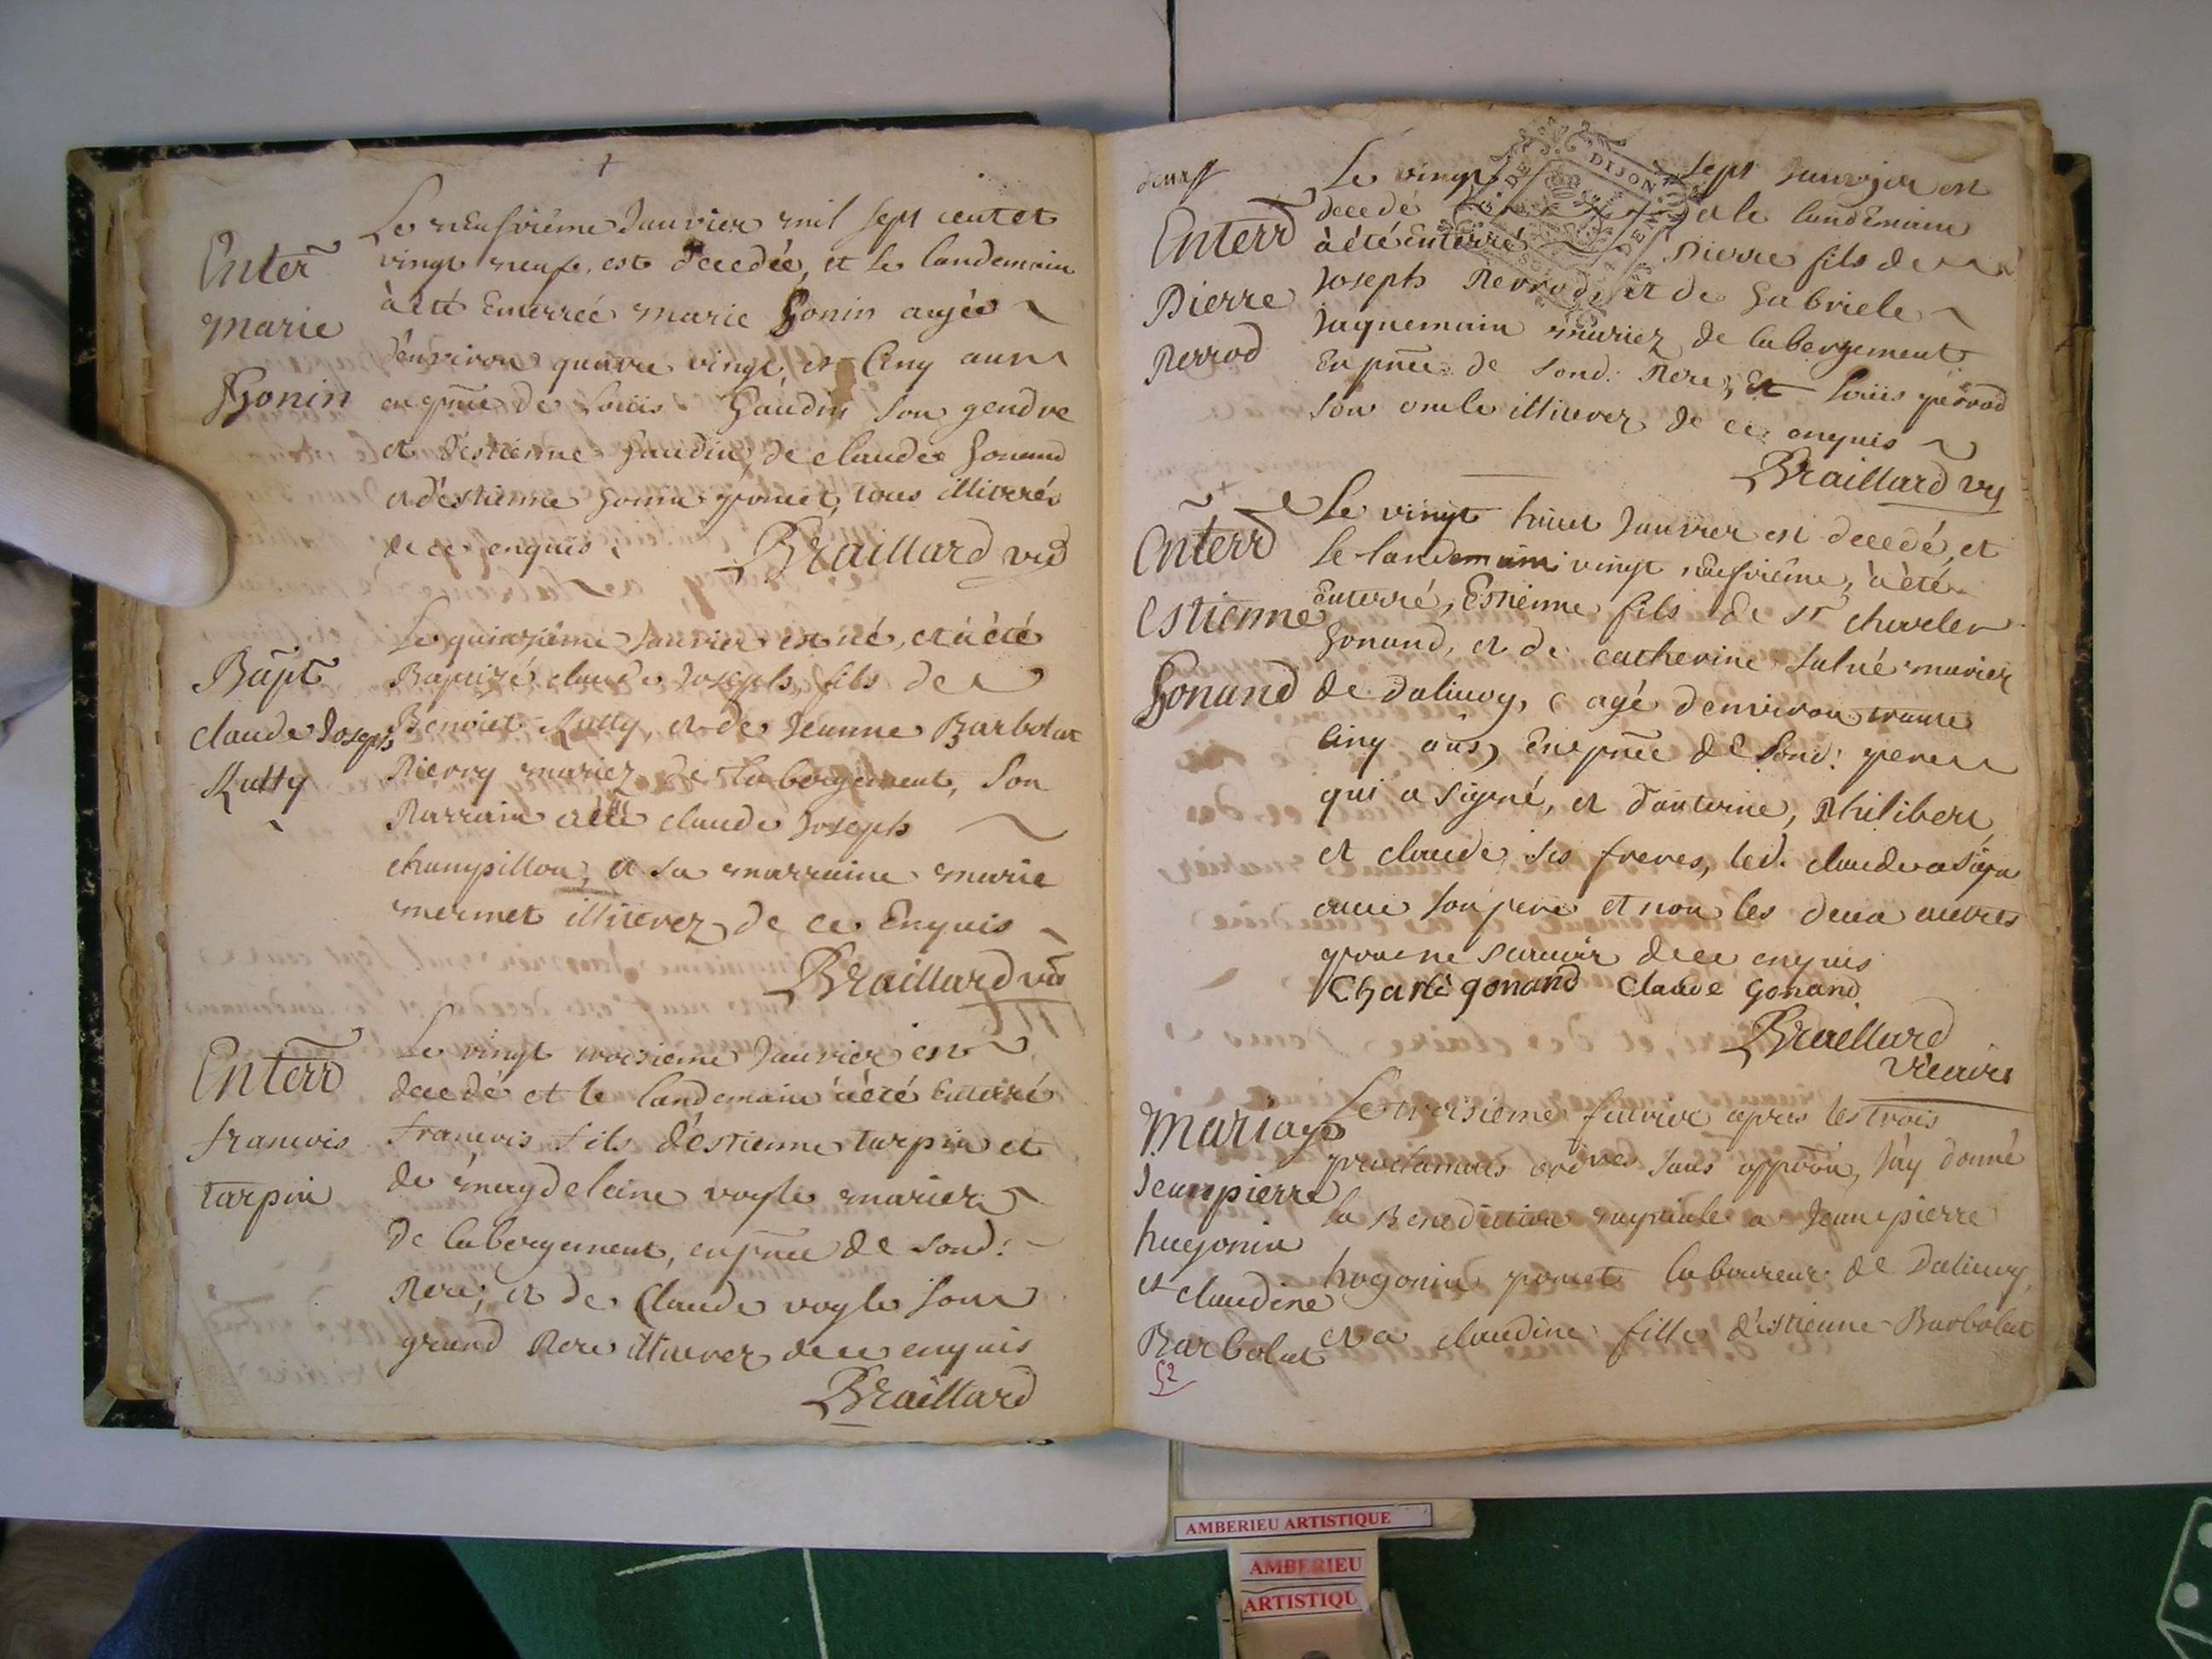 Enterr̃
marie
Gonin
Le neufvième Janvier mil sept cent et
vingt neufe, est decedée, et le landemain
à été Enterreé marie Gonin augée
d'environ quattre vingt et Cinq ans
en pñce de Loüis Gaudin son gendre
et d'estienne Gaudin, de claude Gonand
et d'estienne Gonin poncet, tous illiterés
de ce enquis,
Braillard vic̃
Bapt̃
claude Joseph
Rutty
Le quinzième Janvier est né, et à été
Baptizé claude Joseph fils de
Benoiet Rutty, et de Jeanne Barbolat
Pierry mariez de labergement, Son
Parrain a été claude Joseph
champillon, et sa marraine marie
mermet illiterez de ce Enquis
Braillard vic̃
Enterr̃
francois
turpin
Le vingt troisieme Janvier est
decedé et le landemain à été Enterré
francois fils d'estienne turpin et
de magdelaine voyle mariez
de labergement, en pñce de sond:
Pere, et de Claude voyle son
grand Pere illiterez de ce enquis
Braillard
Enterr̃
Pierre
Perrod
Le vingt sept Janvier est
decedé et le landemain
à été enterré Pierre fils de
Joseph Perrod, et de Gabriele
Jaquemain mariez de labergement
En pñce de sond: Pere, et Loüis perrod
son oncle illiterez de ce enquis
DE DIJON
Braillard vic̃
Enterr̃
Estienne
Gonand
Le vingt huict Janvier est decedé, et
le landemain vingt neufvième, à été
Enterré, Estienne fils de Sr charles
Gonand, et de catherine mariez
de Dalivoy, agé d'environ trante
Cinq ans, En pñce de Sond: pere
qui a signé, et d'antoine, Philibert
et claude ses freres, led. claude a signé
avec son pere et non les deux autres
pour ne scavoir de ce enquis
Charle gonand Claude Gonand
Braillard
vicaire
Mariage
Jean pierre
hugonin
et claudine
Barbolat
52
Le troisieme fevrier apres les trois
proclamaõs ordres sans oppoõn, J'ay donné
la Benediction nuptiale a Jean pierre
hogonin poncet laboureur de Dalivoy,
et a claudine fille d'estienne Barbolat
AMBERIEU ARTISTIQUE
AMBERIEU
ARTISTIQU